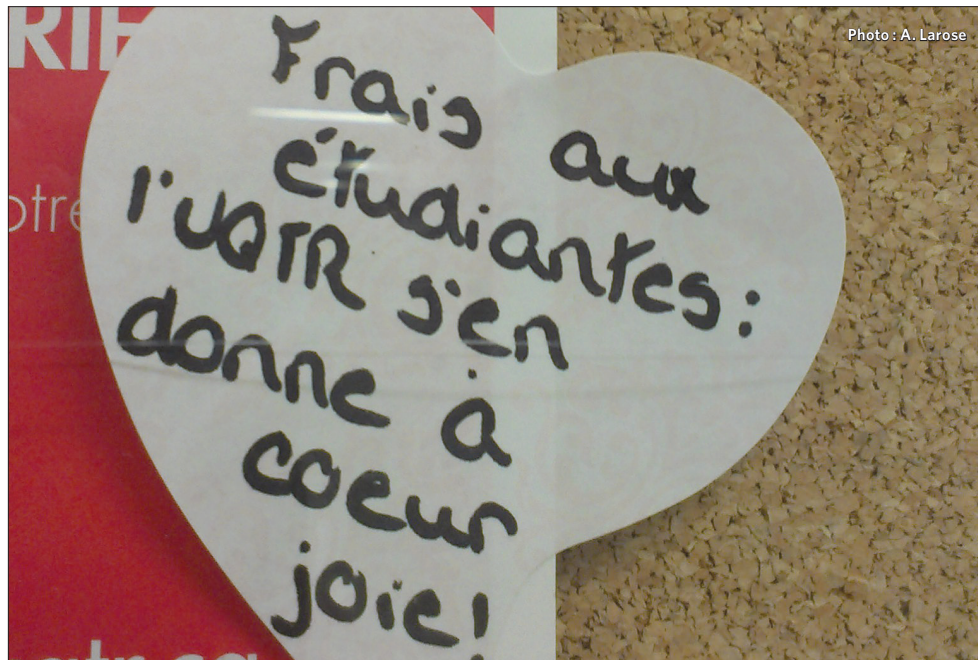 Photo : A. Larose
RIE
otre
Frais aux
étudiantes:
l'UQTR s'en
donne à
coeur
joie!
qtr.ca